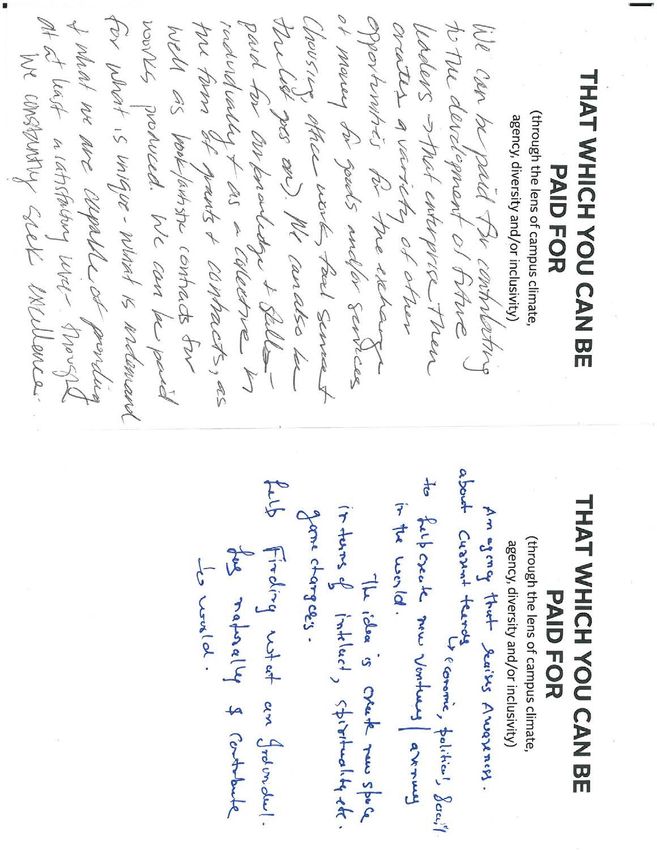 THAT WHICH YOU CAN BE
PAID FOR
(through the lens of campus climate,
agency, diversity and/or inclusivity)
We can be paid for contributing
to the development of future
leaders → that enterprise then
creates a variety of other
opportunities for the exchange
of money for goods and/or services
(housing, office work, food service +
the list goes on). We can also be
paid for our knowledge + skills –
individually + as a collective in
the form of grants + contracts, as
well as book/artistic contracts for
works produced. We can be paid
for what is unique - what is in demand
+ what we are capable of providing
at at least a satisfactory level – though
we constantly seek excellence.
THAT WHICH YOU CAN BE
PAID FOR
(through the lens of campus climate,
agency, diversity and/or inclusivity)
An agency that raises Awareness.
about current trends
↳ economic, political, Social
to help create new Ventures /
in the world.
The idea is create new space
in terms of intelect, spirituality etc.
game changers.
help Finding what an individual.
has naturally & Contribute
to world.